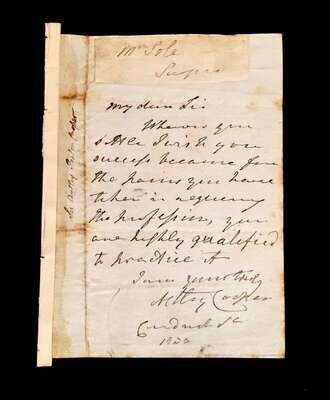 Mr Sole
Surgeon
My dear Sir
Wherever you
settle I wish you
success because from
the pains you have
taken in acquiring
the profession, you
are highly qualified
to practice it
Yours very truly
Astley Cooper
Conduit St